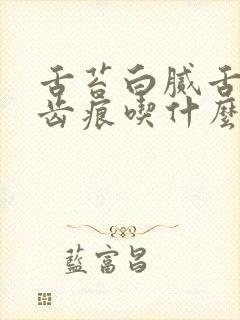 舌苔白膩舌
齒痕喫什麼
藍富昌